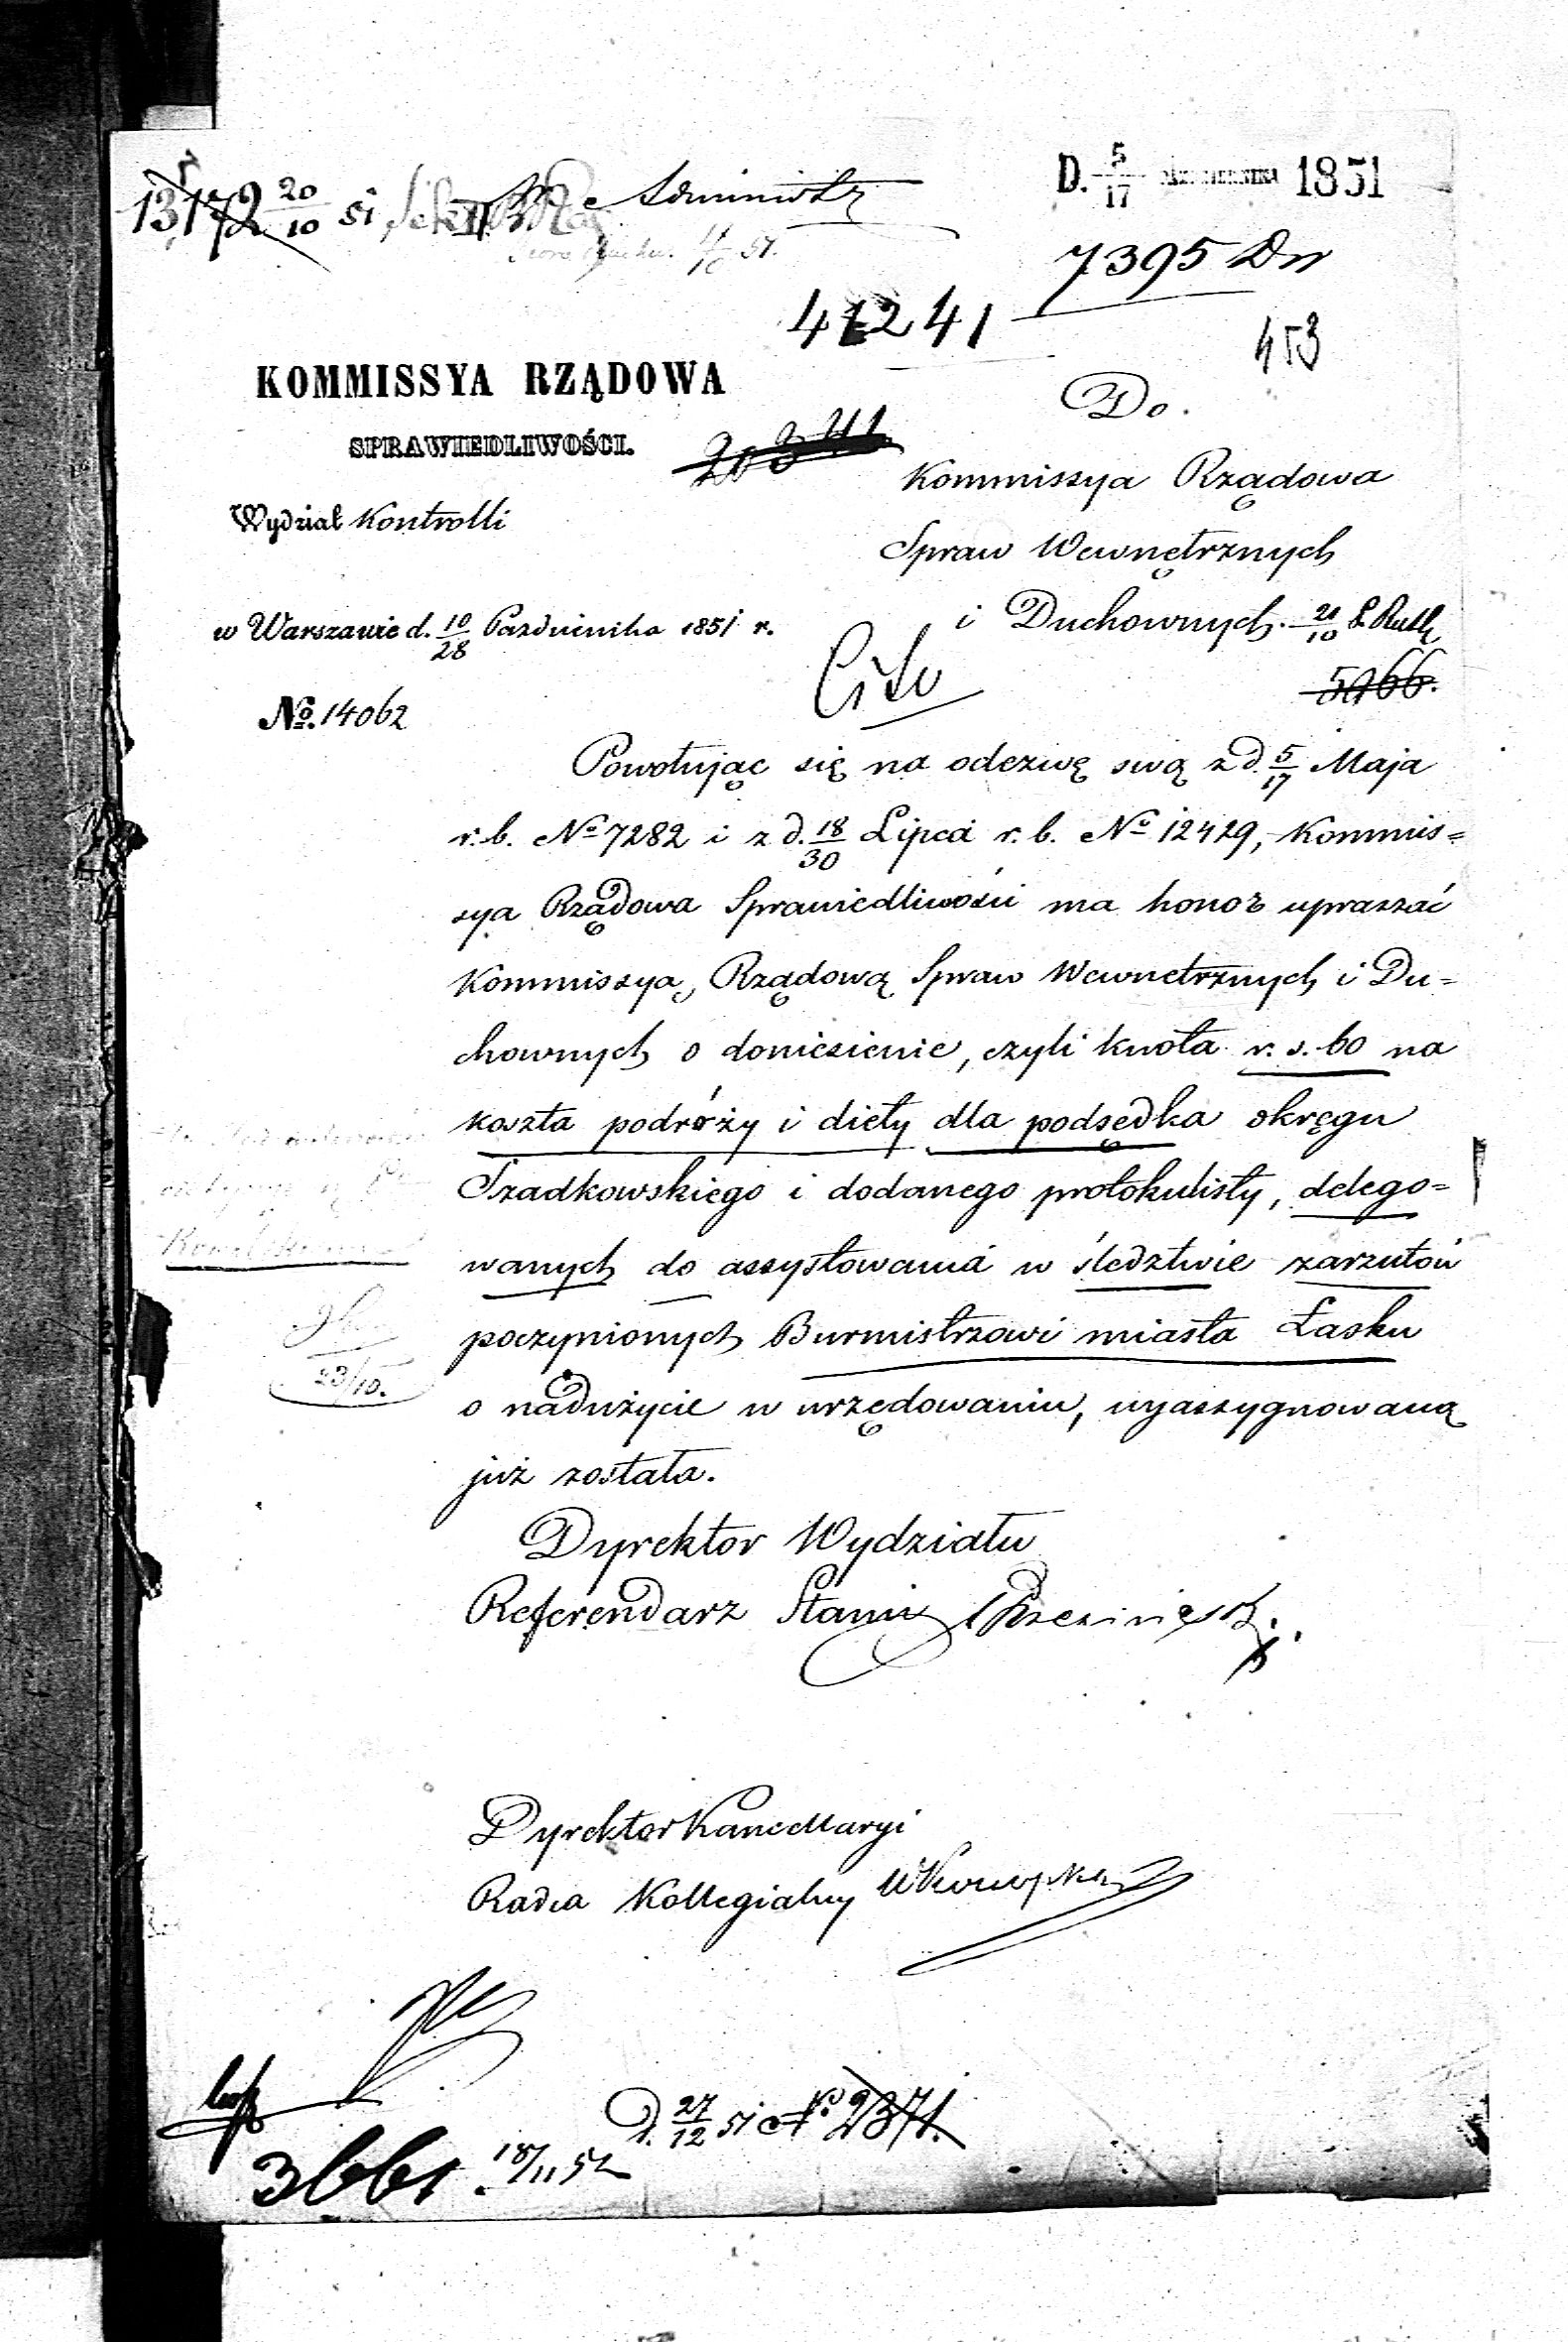 13172 20/10 51
D. 5/17 PAŹDZIERNIKA 1851
7395 Dn
41241
453
KOMMISSYA RZĄDOWA
SPRAWIEDLIWOŚCI.
Wydział Kontrolli
w Warszawie d. 10/28 Pazdziernika 1851 r.
No. 14062
Do.
Kommissya Rządowa
Spraw Wewnętrznych
i Duchownych. 21/10
Cito
5966.
Powołując się na odezwę swą z d. 5/17 Maja
r. b. No 7282 i z d. 18/30 Lipca r. b. No 12429, Kommis=
sya Rządowa Sprawiedliwości ma honor upraszać
Kommissyą Rządową Spraw Wewnetrznych i Du=
chownych o doniesienie, czyli kwota r. s. 60 na
koszta podróży i diety dla podsędka okręgu
Szadkowskiego i dodanego protokulisty, delego=
wanych do assystowania w śledztwie zarzutów
poczynionych Burmistrzowi miasta Łasku
o nadużycie w urzędowaniu, wyassygnowaną
już została.
Dyrektor Wydziału
Referendarz
23/10.
Dyrektor Kancellaryi
Radca Kollegialny
D. 27/12 51 No 2371.
3661. 18/11 52